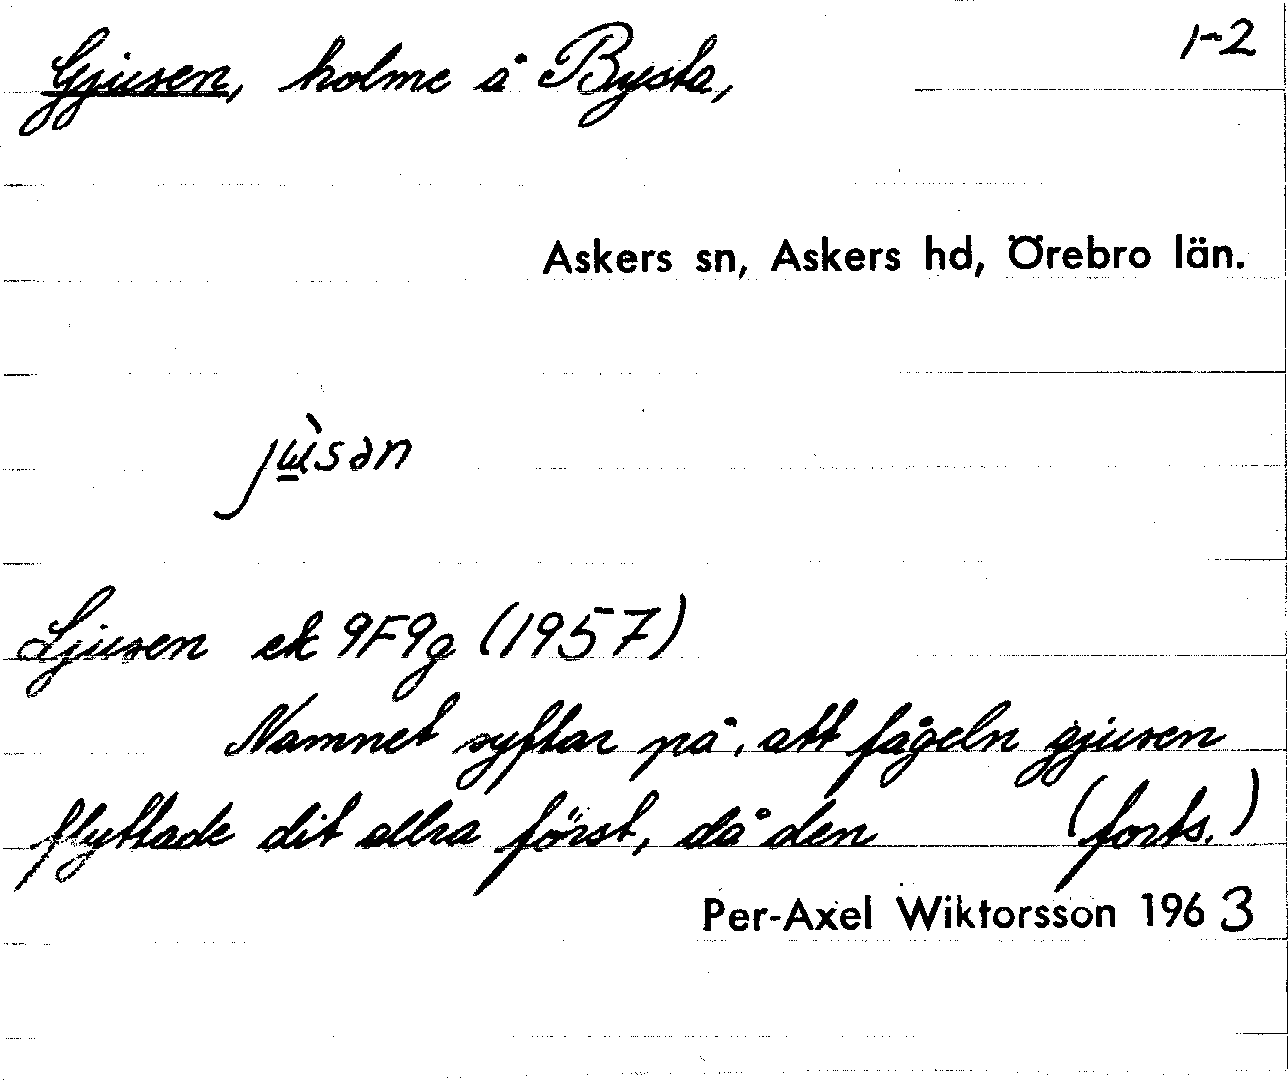 Gjusen, holme å Bysta, 1-2
Askers sn, Askers hd, Örebro län.
jɯ̀sən
Ljusen ek 9F9g (1957)
Namnet syftar på, att fågeln gjusen
flyttade dit allra först, då den (forts.)
Per-Axel Wiktorsson 1963